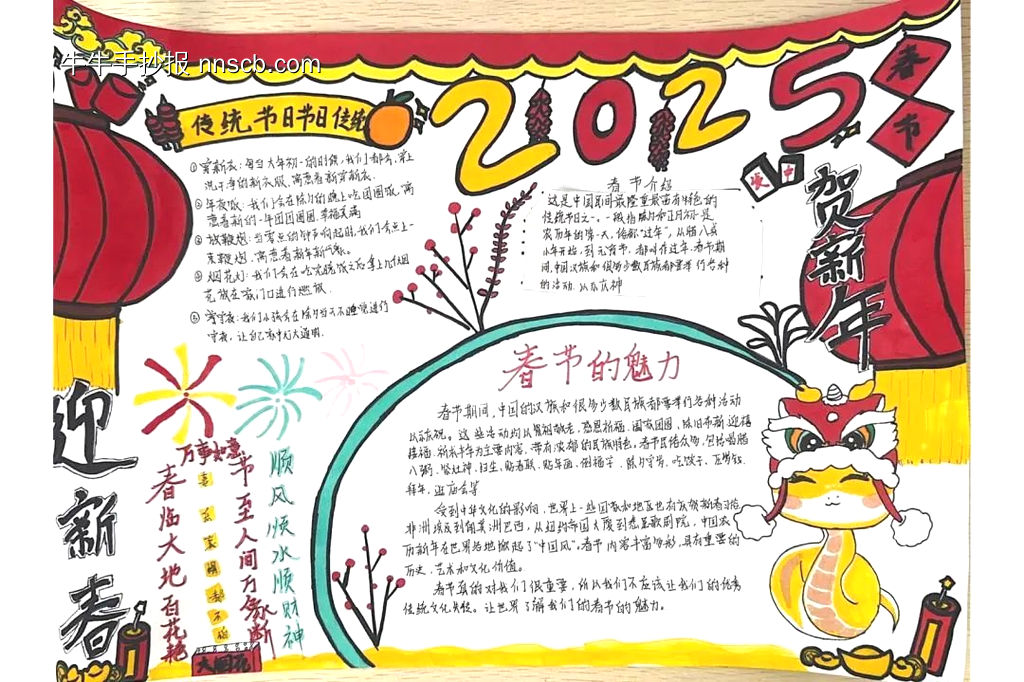 牛牛手抄报 nnscb.com
2025
春节
传统节日节日传统
贺新年
发
中
①穿新衣:每当大年初一的时候,我们都会穿上
洗干净的新衣服,寓意着新年新衣。
②年夜饭:我们会在除夕的晚上吃团圆饭,寓
意着新的一年团团圆圆,幸福美满
③放鞭炮:当零点的钟声响起时,我们会点上一
④烟花灯:我们会在吃完晚饭之后拿上几个烟
花放在家门口进行燃放
⑤守夜:我们小孩会在除夕当天不睡觉进行
守夜,让自己
春节介绍
这是中国民间最隆重最富有特色的
传统节日之一。一般指除夕和正月初一是
农历年的第一天,俗称“过年”。从腊八或
小年开始,到元宵节,都叫在过年。春节期
间,中国汉族和很多少数民族都要举行各种
的活动
春节的魅力
春节期间,中国的汉族和很多少数民族都要举行各种活动
以示庆祝。这些活动均以祭祖敬老、感恩祈福、阖家团圆、除旧布新、迎禧
接福、祈求丰年为主要内容,带有浓郁的民族特色。春节民俗众多,包括喝腊
八粥、祭灶神、扫尘、贴春联、贴年画、倒福字、除夕守岁、吃饺子、
拜年、逛庙会等
受到中华文化的影响,世界上一些国家和地区也有庆贺新春习俗
非洲埃及到南美洲巴西,从纽约帝国大厦到悉尼歌剧院,中国农
历新年在世界各地掀起了“中国风”。春节内容丰富多彩,具有重要的
历史、艺术和文化价值。
春节真的对我们很重要,所以我们不应该让我们的优秀
传统文化失传。让世界了解我们的春节的魅力。
迎新春
万事如意
春临大地百花艳
喜
去
家
都
不
节至人间万象新
顺风顺水顺财神
大烟花